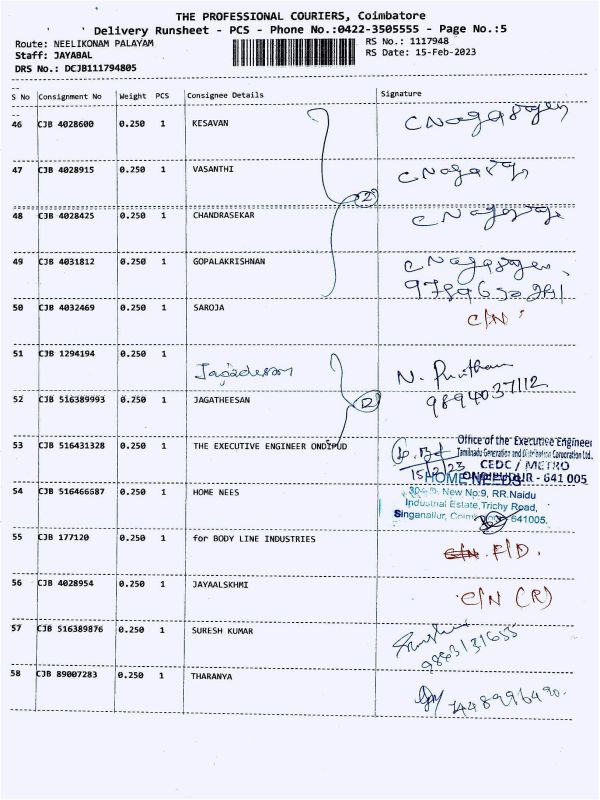 THE PROFESSIONAL COURIERS, Coimbatore
Delivery Runsheet - PCS - Phone No.:0422-3505555 - Page No.:5
Route: NEELIKONAM PALAYAM RS No.: 1117948
Staff: JAYABAL RS Date: 15-Feb-2023
DRS No.: DCJB111794805
S No Consignment No Weight PCS Consignee Details Signature
46 CJB 4028600 0.250 1 KESAVAN
47 CJB 4028915 0.250 1 VASANTHI
48 CJB 4028425 0.250 1 CHANDRASEKAR
49 CJB 4031812 0.250 1 GOPALAKRISHNAN
50 CJB 4032469 0.250 1 SAROJA C/N
51 CJB 1294194 0.250 1 Jagadeesan
N.
9894037112
52 CJB 516389993 0.250 1 JAGATHEESAN
53 CJB 516431328 0.250 1 THE EXECUTIVE ENGINEER ONDIPUD
Office of the Executive Engineer
Tamilnadu Generation and Distribution Corporation Ltd.
CEDC / METRO
15/2/23 ONDIPUDUR - 641 005
54 CJB 516466687 0.250 1 HOME NEES
HOME NEEDS
New No:9, RR.Naidu
Industrial Estate, Trichy Road,
Singanallur, 641005.
55 CJB 177120 0.250 1 for BODY LINE INDUSTRIES C/N F/D.
56 CJB 4028954 0.250 1 JAYAALSKHMI C/N (R)
57 CJB 516389876 0.250 1 SURESH KUMAR
9843131655
58 CJB 89007283 0.250 1 THARANYA
7448996490.